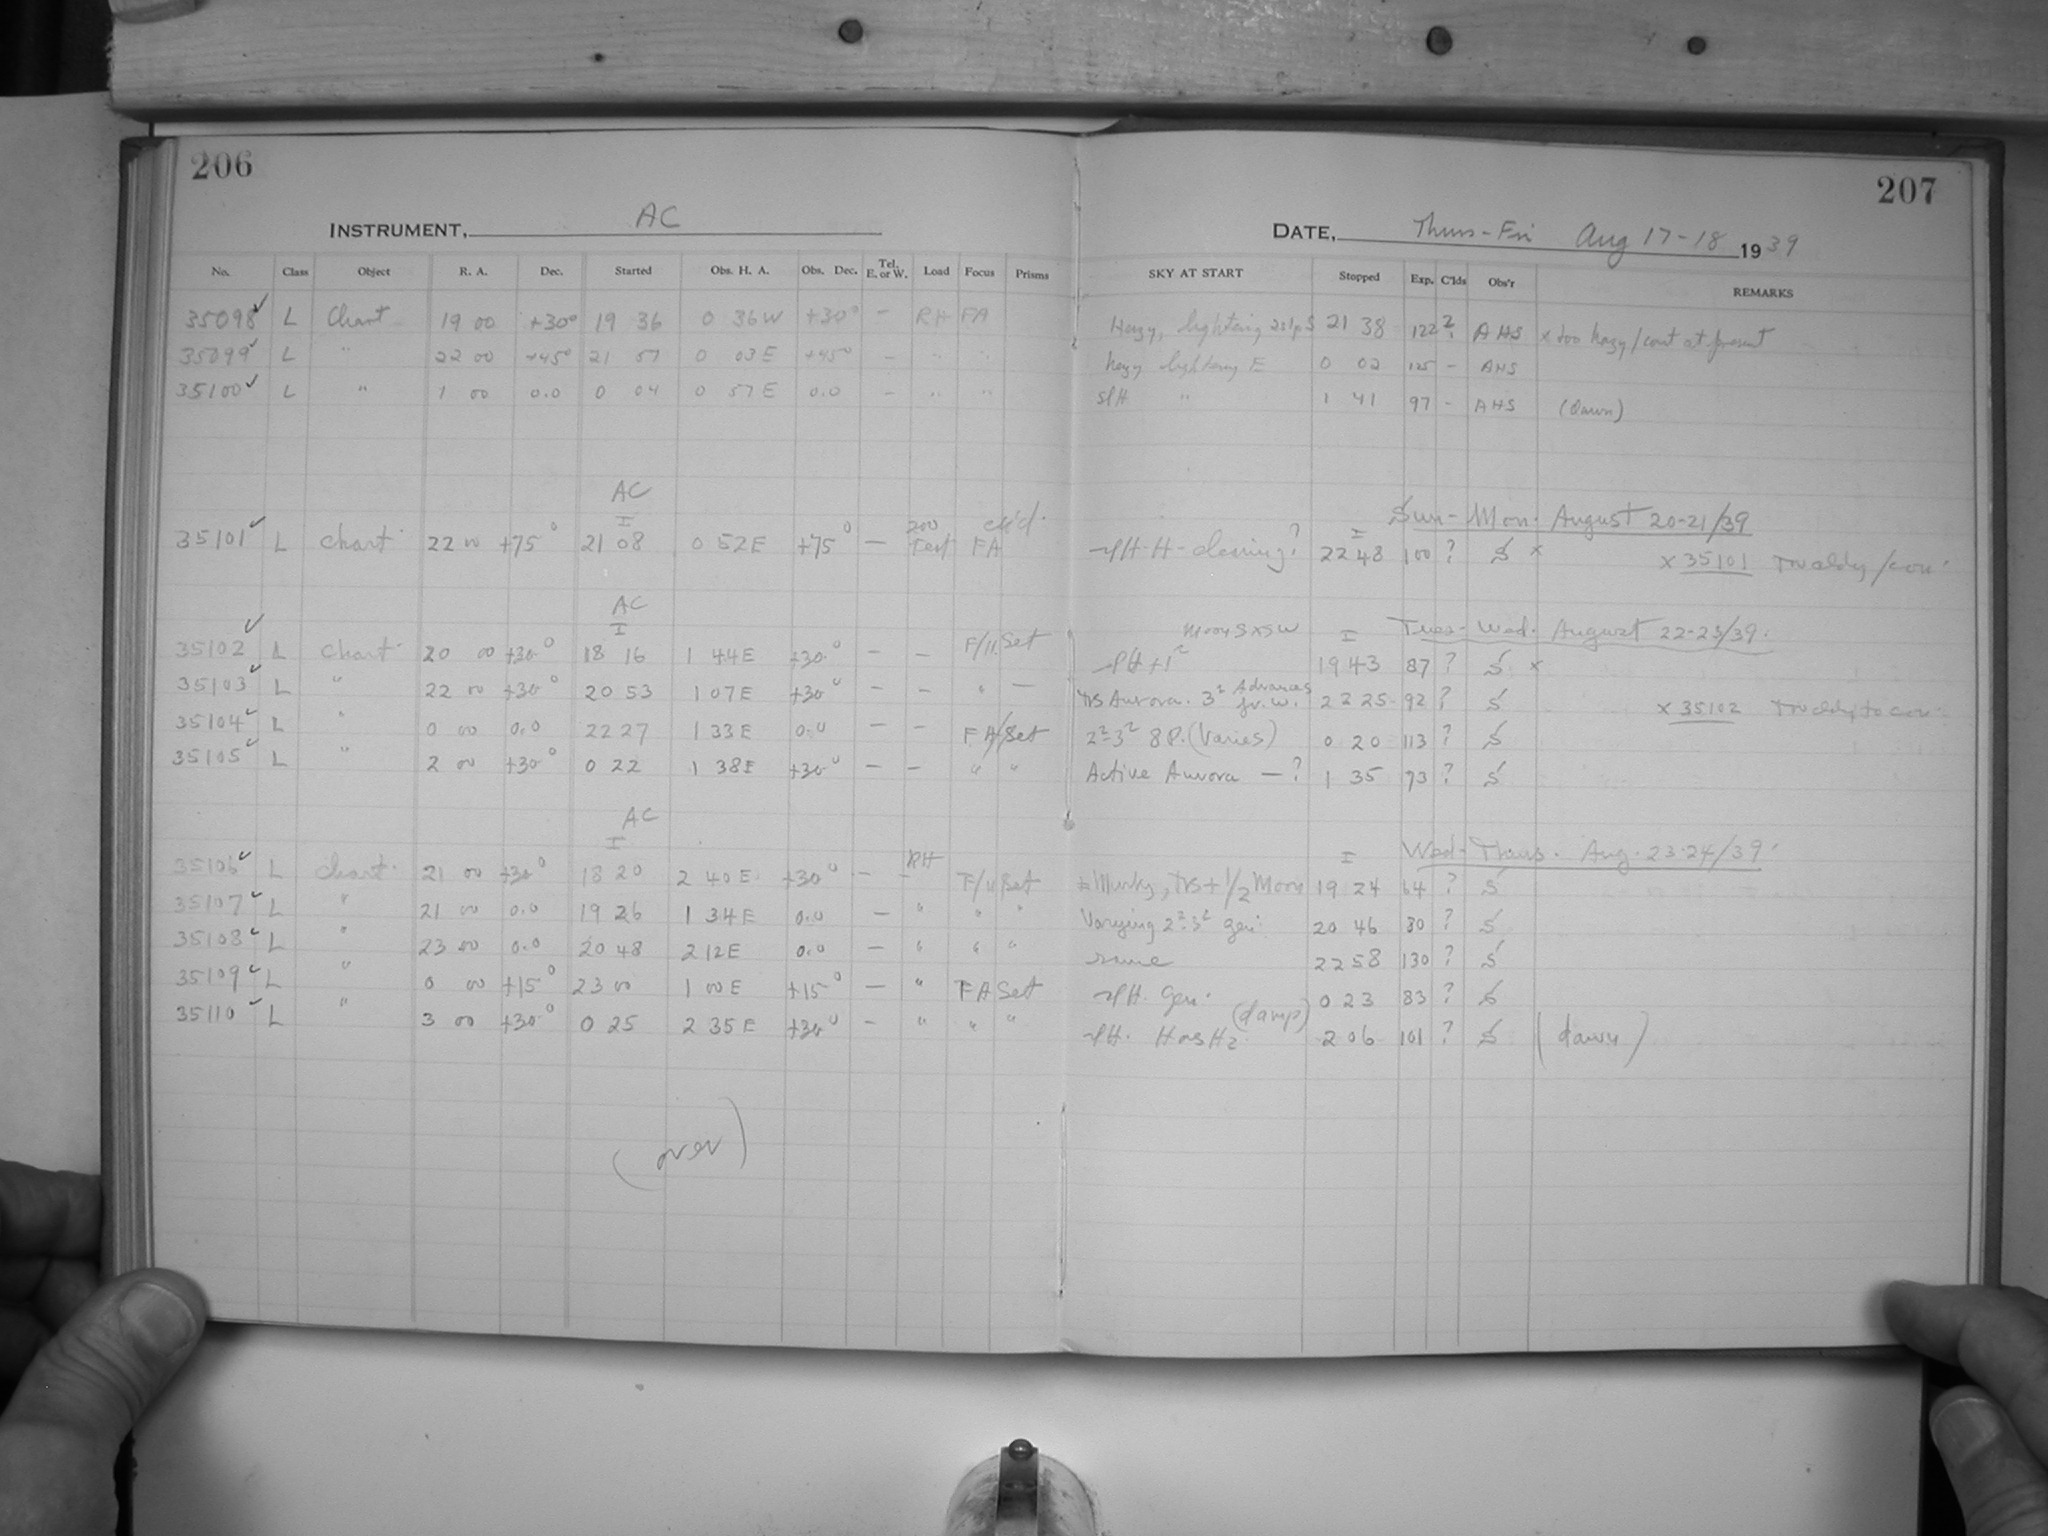 206
207
INSTRUMENT, AC
DATE, Thurs-Fri Aug 17-18 1939
No. Class Object R. A. Dec. Started Obs. H. A. Obs. Dec. Tel. E. or W. Load Focus Prisms SKY AT START Stopped Exp. C'lds Obs'r REMARKS
35098 L Chart 19 00 +30° 19 36 0 36W +30° - RH FA Hazy, lightning 21 38 122 ? AHS x too hazy/cont at present
35099 L " 22 00 +45° 21 57 0 03E +45° - " " hazy lightning E 0 02 125 - AHS
35100 L " 1 00 0.0 0 04 0 57E 0.0 - " " " 1 41 97 - AHS (Dawn)
AC
I
I Sun-Mon. August 20-21/39
35101 L chart 22 00 +75° 21 08 0 52E +75° - 200 Test FA H-clearing? 22 48 100 ? S x x 35101
AC
I
Moon SxSW I Tues-Wed. August 22-23/39.
35102 L chart 20 00 +30° 18 16 1 44E +30° - - F/11 Set 19 43 87 ? S x
35103 L " 22 00 +30° 20 53 1 07E +30° - - " - Aurora. 3² Advances fr. W. 22 25 92 ? S x 35102
35104 L " 0 00 0.0 22 27 1 33E 0.0 - - FA/Set 2²-3² 8P. (Varies) 0 20 113 ? S
35105 L " 2 00 +30° 0 22 1 38E +30° - - " " Active Aurora - ? 1 35 73 ? S
AC
I
I Wed-Thurs. Aug. 23-24/39
35106 L chart 21 00 +30° 18 20 2 40E +30° - - RH F/11 Set Murky, + 1/2 Moon 19 24 64 ? S
35107 L " 21 00 0.0 19 26 1 34E 0.0 - " " " Varying 2²-3² gen. 20 46 80 ? S
35108 L " 23 00 0.0 20 48 2 12E 0.0 - " " " same 22 58 130 ? S
35109 L " 0 00 +15° 23 00 1 00E +15° - " FA Set gen. 0 23 83 ? S
35110 L " 3 00 +30° 0 25 2 35E +30° - " " " (damp) 2 06 101 ? S (dawn)
(over)